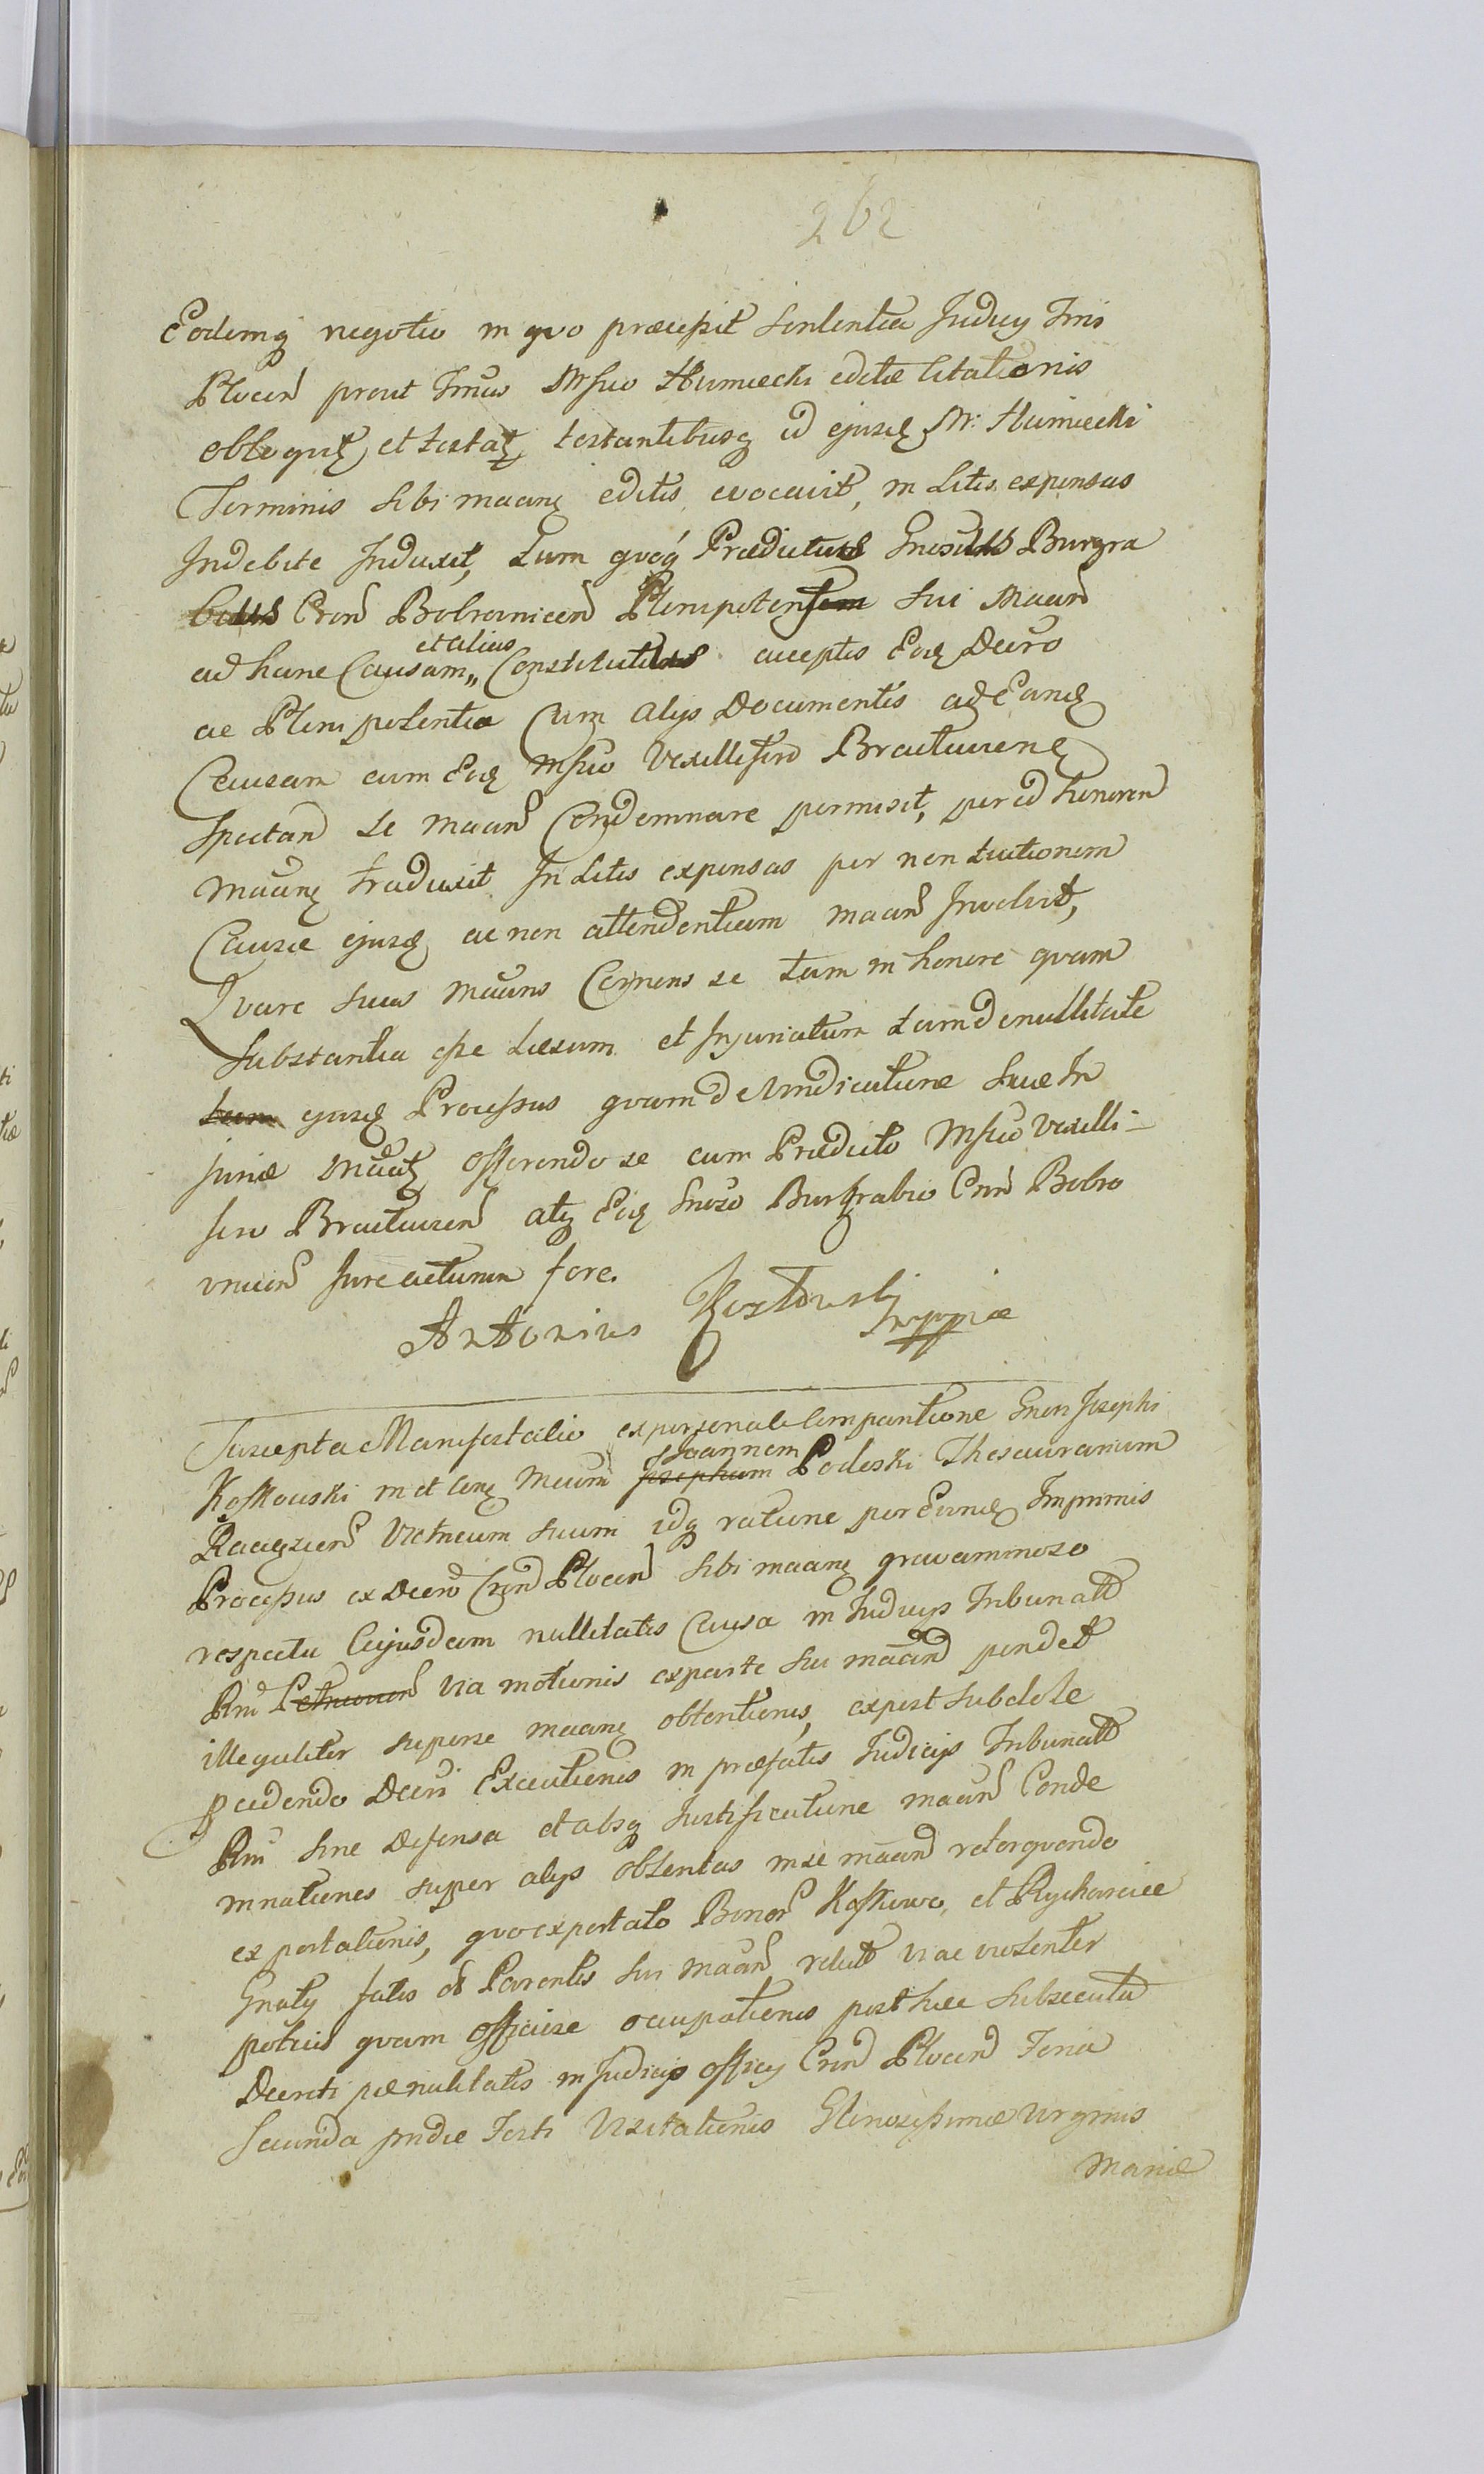 262
Eodemq negotio in quo præcessit sententia Judicij Tris
Plocen prout Tmus Mfco Humiecki editæ Citationis
obloquit et testat, testantibusq id ejusd M: Humiecki
Terminis sibi maane editis evocavit, in Litis expensas
Indebite Induxit, Tum quoq Prædictus Gnosus Burgra
bius Cren Bobrownicen Plenipotens sui Maan
et alias
ad hanc Causam,, Constitutus acceptis Eod Decro
ac Plenipotentia Cum alijs Documentis ad Eand
Causam cum Eod Mfco Vexillifero Bractavien
spectan se maan Condemnare permisit, per id honorem
maane traduxit In Litis expensas per non tuitionem
Causæ ejusd ac non attendentiam maan Involvit,
Quare suus maans Cernens se tam in honore quam
substantia esse Læsum et Injuriatum tam de nullitate
ejusd Processus quam de Vindicatione suæ In
juriæ offerendo se cum Prædicto Mfco Vexilli-
fero Bractavien atq Eod Gnoso Burgrabio Cren Bobro
vnicen Jure acturum fore.
Antonius Kozłowski
Suscepta Manifestatio ex personali Comparitione Gnosi Josephi
Joannem
Kossowski in et Cone Mcum Josephum Podoski Thesaurarium
Vitricum suum idq ratione per Eund Imprimis
Processus ex Decro Cren Plocen sibi maane gravaminoso
respectu Cujusdam nullitatis Causa in Judicijs Tribunalt
Rni via motionis ex parte sui maand pendet
illegaliter super se maane obtentionis, ex post subdole
pcudendo Decri Executionis in præfatis Judicijs Tribunalt
Rni sine Defensa et absq Justificatione maan Conde
mnationes super alijs obtentas in se maand retorquendo
exportationis, quo exportato Bonor Kossowo, et Rycharcice
Gnaty fatis ob Parentis sui maan relict vi ac violenter
potius quam officiose ocupationis post hæc subsecuta
Decreti pænalitatis in Judicijs officij Cren Plocen Feria
secunda pridie Festi Visitationis Gloriosissimæ Virginis
Mariæ